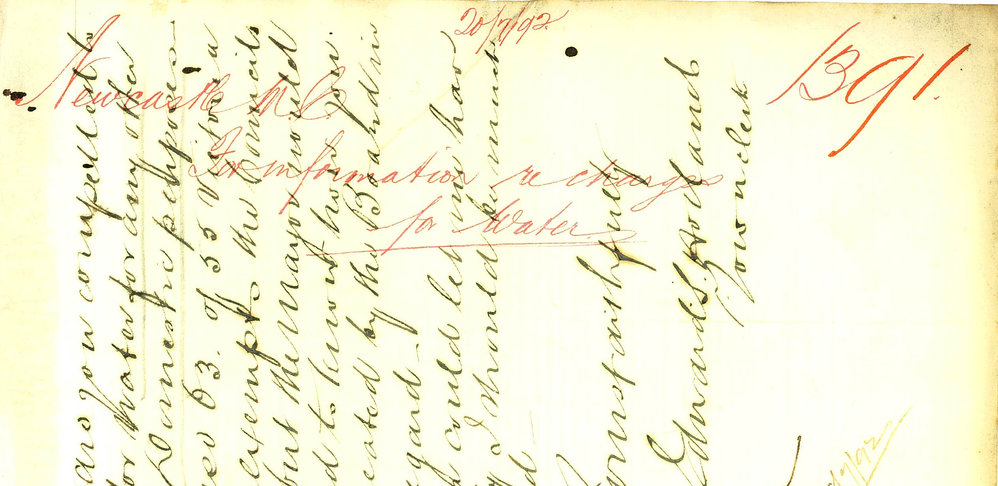 20/7/92
1391.
Newcastle M.C.
For information re charges
for Water
are you compelled to
for water for any other
Domestic purposes
63. of 55 Vic
exempts the Councils
but the Mayor would
to know how you
cated by the Board in
gard.
could let me have
I should be much
Yours faithfully
Edward S. Holland
Town clerk